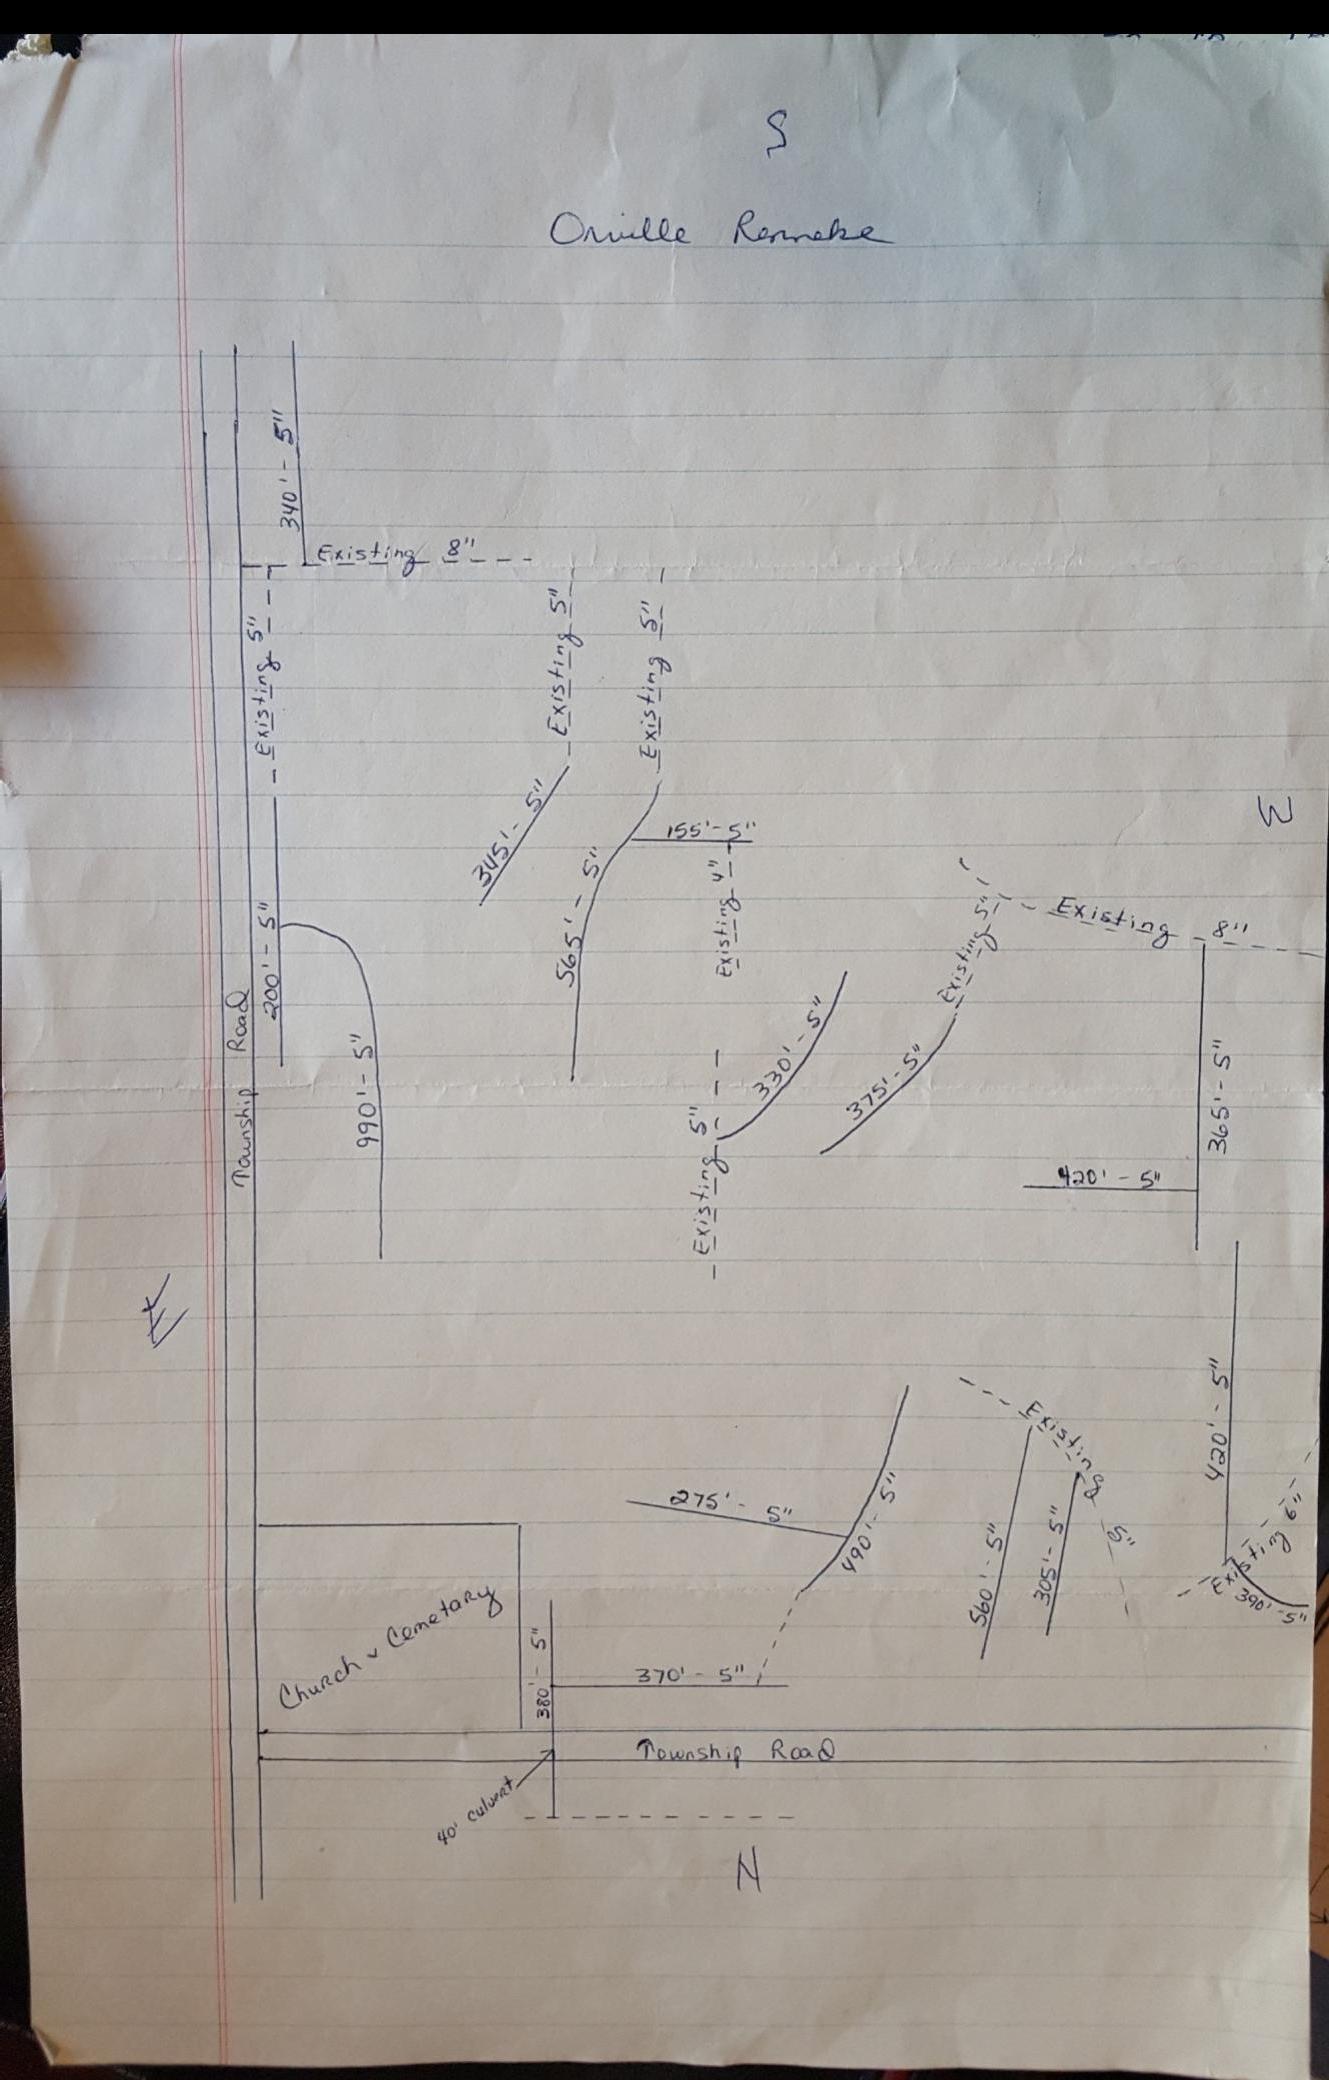 S
Orville Renneke
340' - 5"
Existing 8"
Existing 5"
Existing 5"
Existing 5"
345' - 5"
565' - 5"
155' - 5"
Existing 4"
W
Existing 5"
Existing 8"
200' - 5"
Township Road
990' - 5"
330' - 5"
375' - 5"
365' - 5"
420' - 5"
Existing 5"
E
420' - 5"
Existing 5"
275' - 5"
490' - 5"
560' - 5"
305' - 5"
Existing 6"
390' - 5"
Church & Cemetary
380' - 5"
370' - 5"
Township Road
40' culvert
N